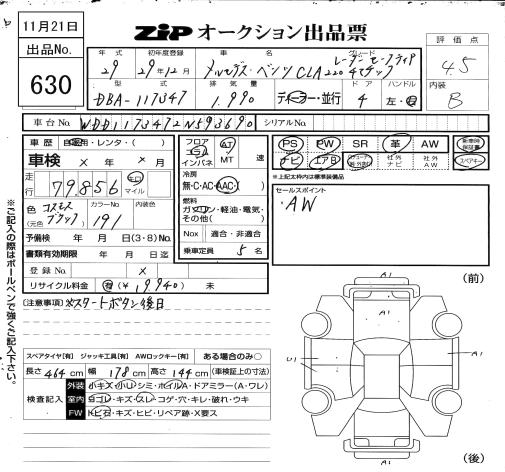 11月21日
出品No.
630
ZiP オークション出品票
評価点
4.5
内装
B
年式
29
初年度登録
29年12月
車名
メルセデス・ベンツCLA220 4マチック
グレード
レーダーセーフティP
型式
DBA-117347
排気量
1.990
ディーラー・並行
ドア
4
ハンドル
左・右
車台No.
WDD1173472N593690
シリアルNo.
車歴 自家用・レンタ・( )
車検 × 年 × 月
走行
79.856
キロ
マイル
色
(元色)
コスモスブラック
カラーNo.
191
内装色
予備検 年 月 日(3・8)No.
書類有効期限 年 月 日迄
登録No. ×
リサイクル料金 有(¥19.940) 未
フロア
コラム
インパネ
AT
MT
速
冷房
無・C・AC・AAC・( )
燃料
ガソリン・軽油・電気・
その他( )
Nox 適合・非適合
乗車定員 5 名
PS PW SR 革 AW
ナビ エアB
社外ナビ
社外AW
スペアキー
※上記太枠内は標準装備品
セールスポイント
・AW
※ご記入の際はボールペンで強くご記入下さい。
[注意事項] ※スタートボタン後日
スペアタイヤ[有] ジャッキ工具[有] AWロックキー[有] ある場合のみ○
長さ 464 cm 幅 178 cm 高さ 144 cm (車検証上の寸法)
検査記入
外装 小キズ・小U・シミ・ホイルA・ドアミラー(A・ワレ)
室内 ヨゴレ・キズ・スレ・コゲ・穴・キレ・破れ・ウキ
FW トビ石・キズ・ヒビ・リペア跡・X要ス
(前)
A1
A1
U1
A1
A1
(後)